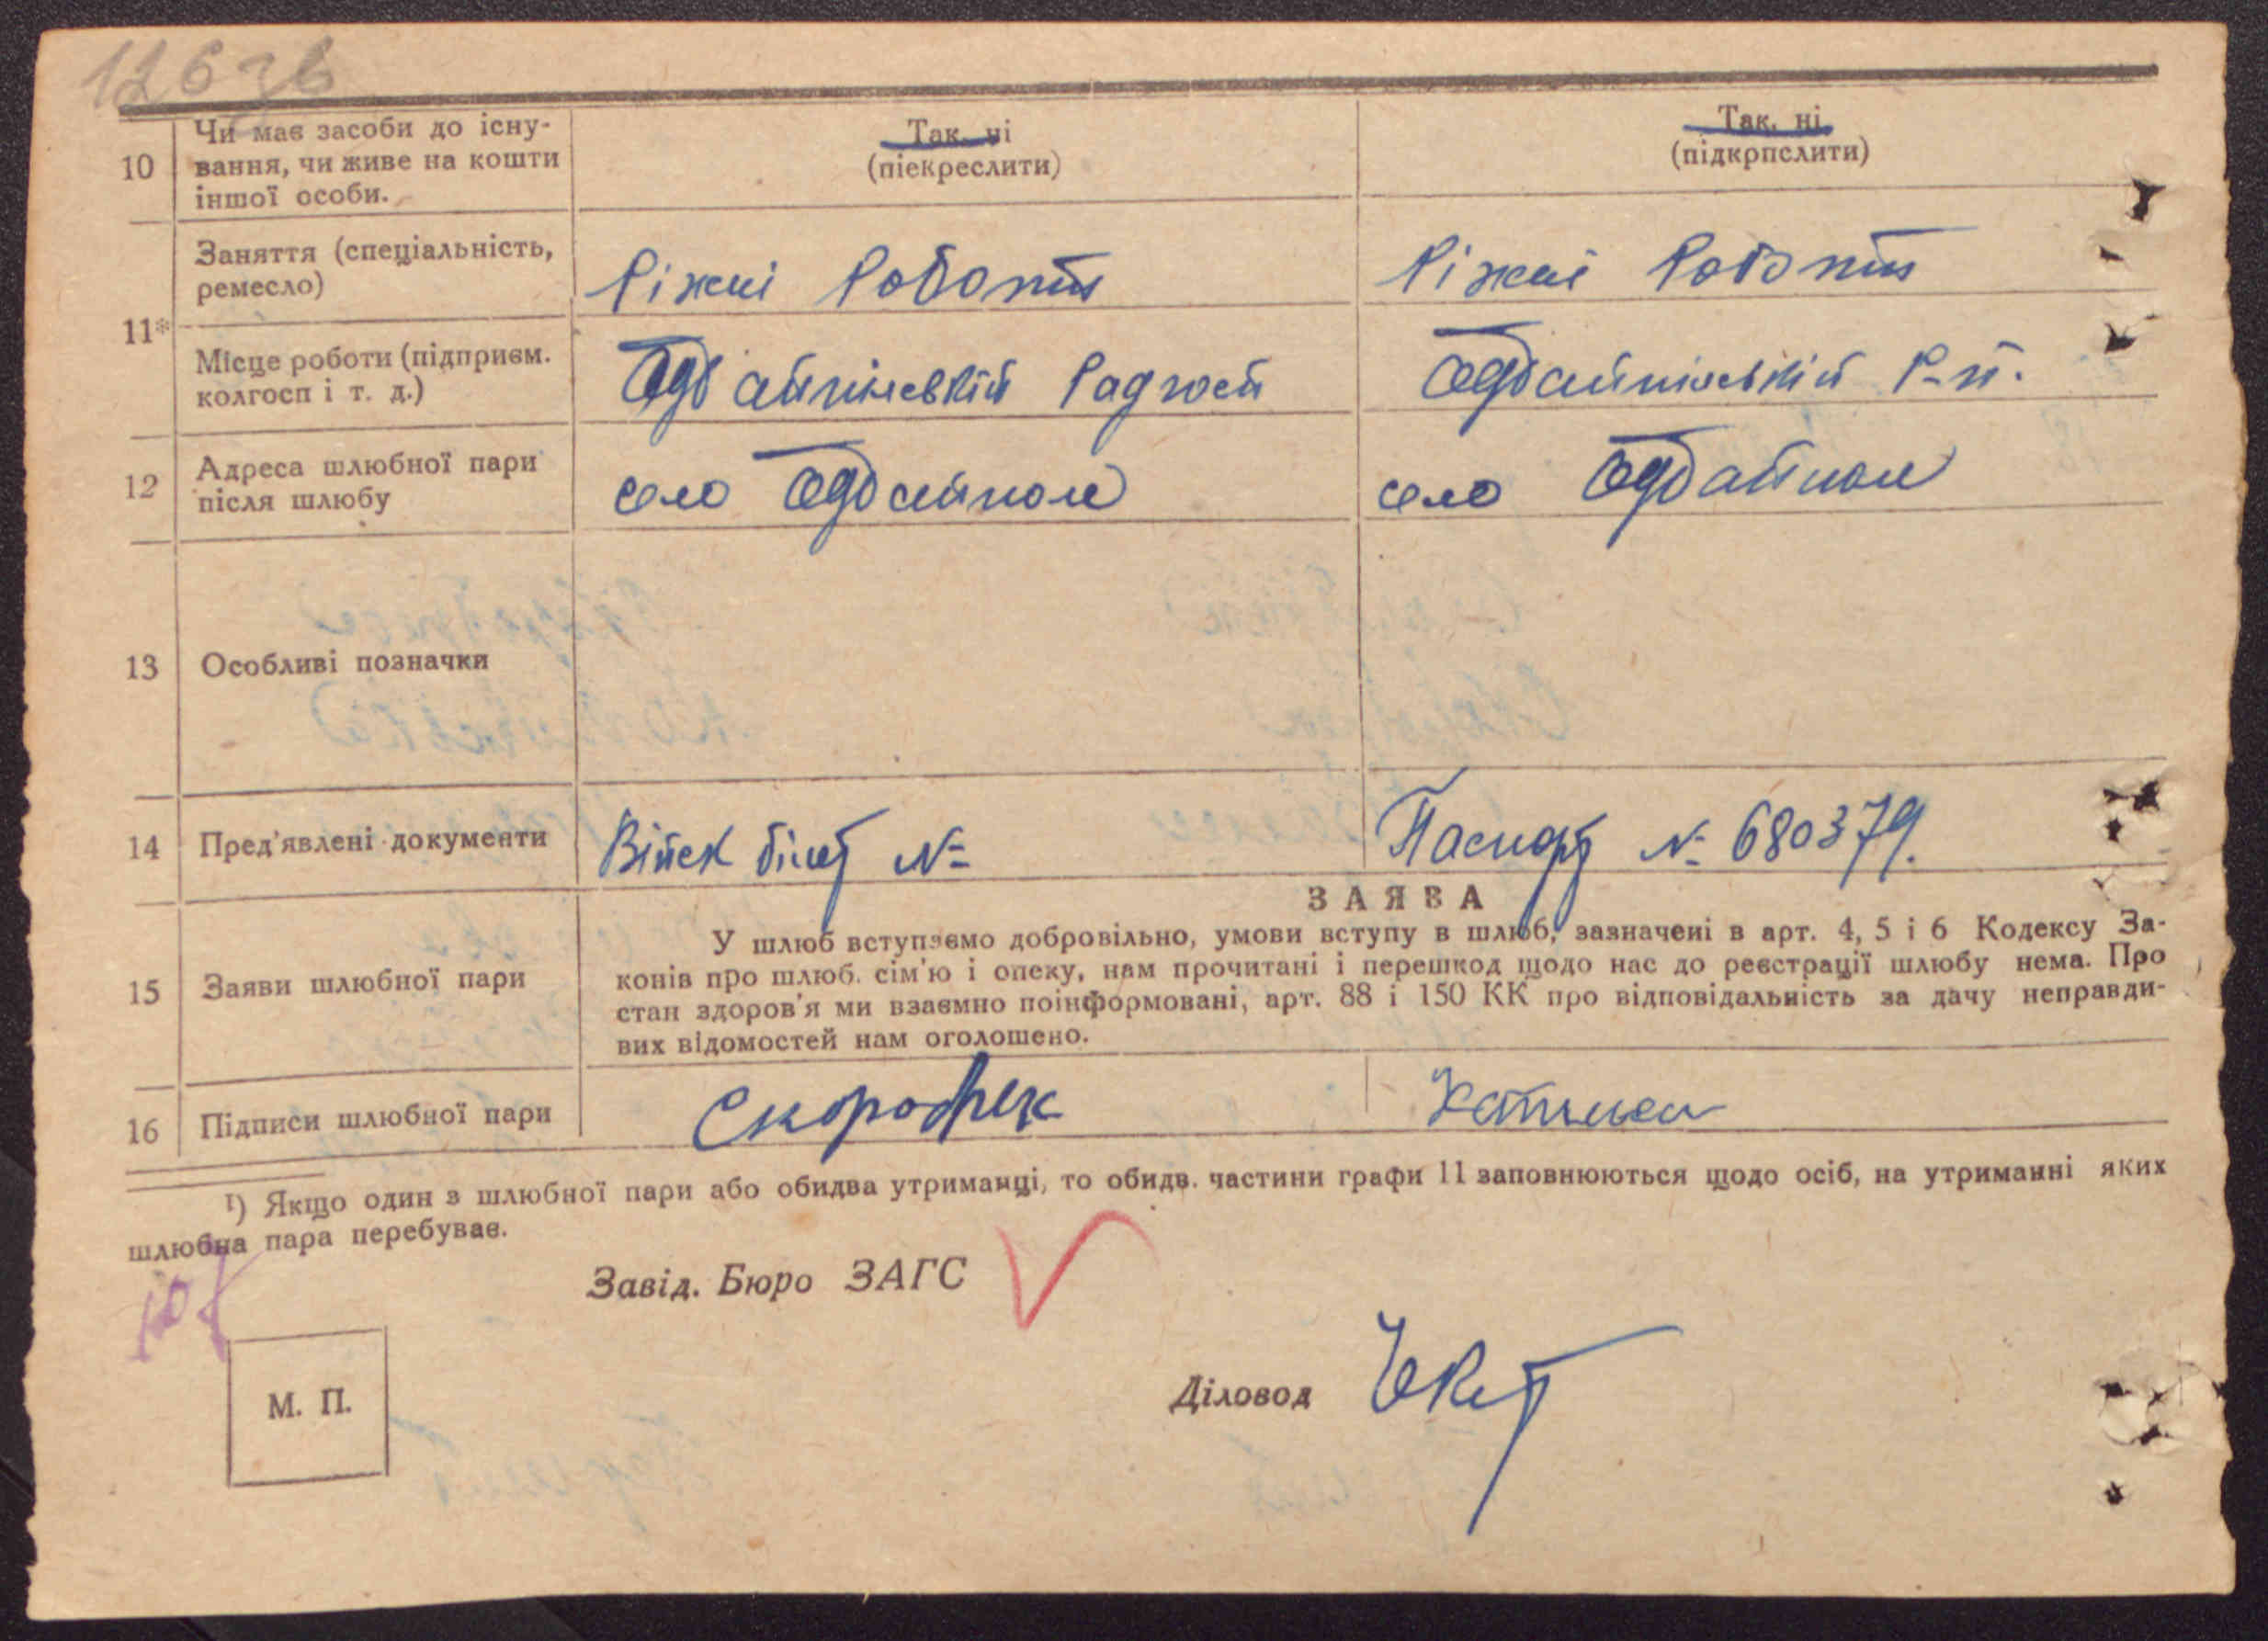 126 зв
10
Чи має засоби до існу-
вання, чи живе на кошти
іншої особи.
Так, ні
(піекреслити)
Так, ні
(підкрпслити)
11*
Заняття (спеціальність,
ремесло)
Ріжні Роботи
Ріжні Роботи
Місце роботи (підприєм.
колгосп і т. д.)
Радгосп
Р-п.
12
Адреса шлюбної пари
після шлюбу
село
село
13
Особливі позначки
14
Пред'явлені документи
Війск білет №
Паспорт № 680379.
15
Заяви шлюбної пари
ЗАЯВА
У шлюб вступаємо добровільно, умови вступу в шлюб, зазначені в арт. 4, 5 і 6 Кодексу За-
конів про шлюб. сім'ю і опеку, нам прочитані і перешкод щодо нас до реєстрації шлюбу нема. Про
стан здоров'я ми взаємно поінформовані, арт. 88 і 150 КК про відповідальність за дачу неправди-
вих відомостей нам оголошено.
16
Підписи шлюбної пари
¹) Якщо один з шлюбної пари або обидва утриманці, то обидв. частини графи 11 заповнюються щодо осіб, на утриманні яких
шлюбна пара перебуває.
Завід. Бюро ЗАГС
М. П.
Діловод